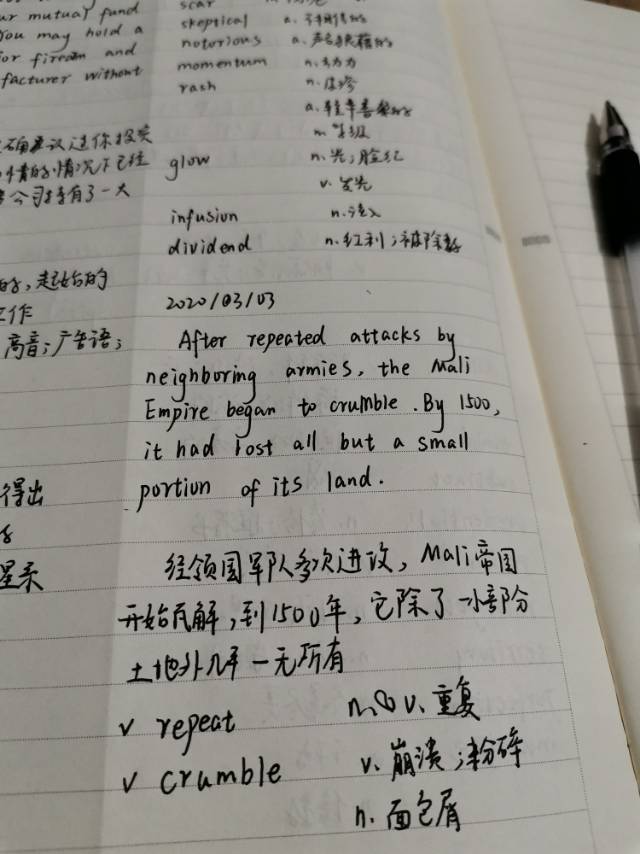 ur mutual fund
You may hold a
and
facturer without
建议送你投资
情的情况下已经
公司持有了一大
起始的
工作
高音；广告语；
得出
scar
skeptical a.
notorious a. 声名狼藉的
momentum n. 动力
rash n. 皮疹
a. 轻率
n. 等级
glow n. 光；脸红
v. 发光
infusion n. 注入
dividend n. 红利；被除数
2020/03/03
After repeated attacks by
neighboring armies, the Mali
Empire began to crumble. By 1500,
it had lost all but a small
portion of its land.
经领国军队多次进攻，Mali帝国
开始瓦解，到1500年，它除了一小部分
土地外几乎一无所有
v repeat n.&v. 重复
v crumble v. 崩溃；粉碎
n. 面包屑